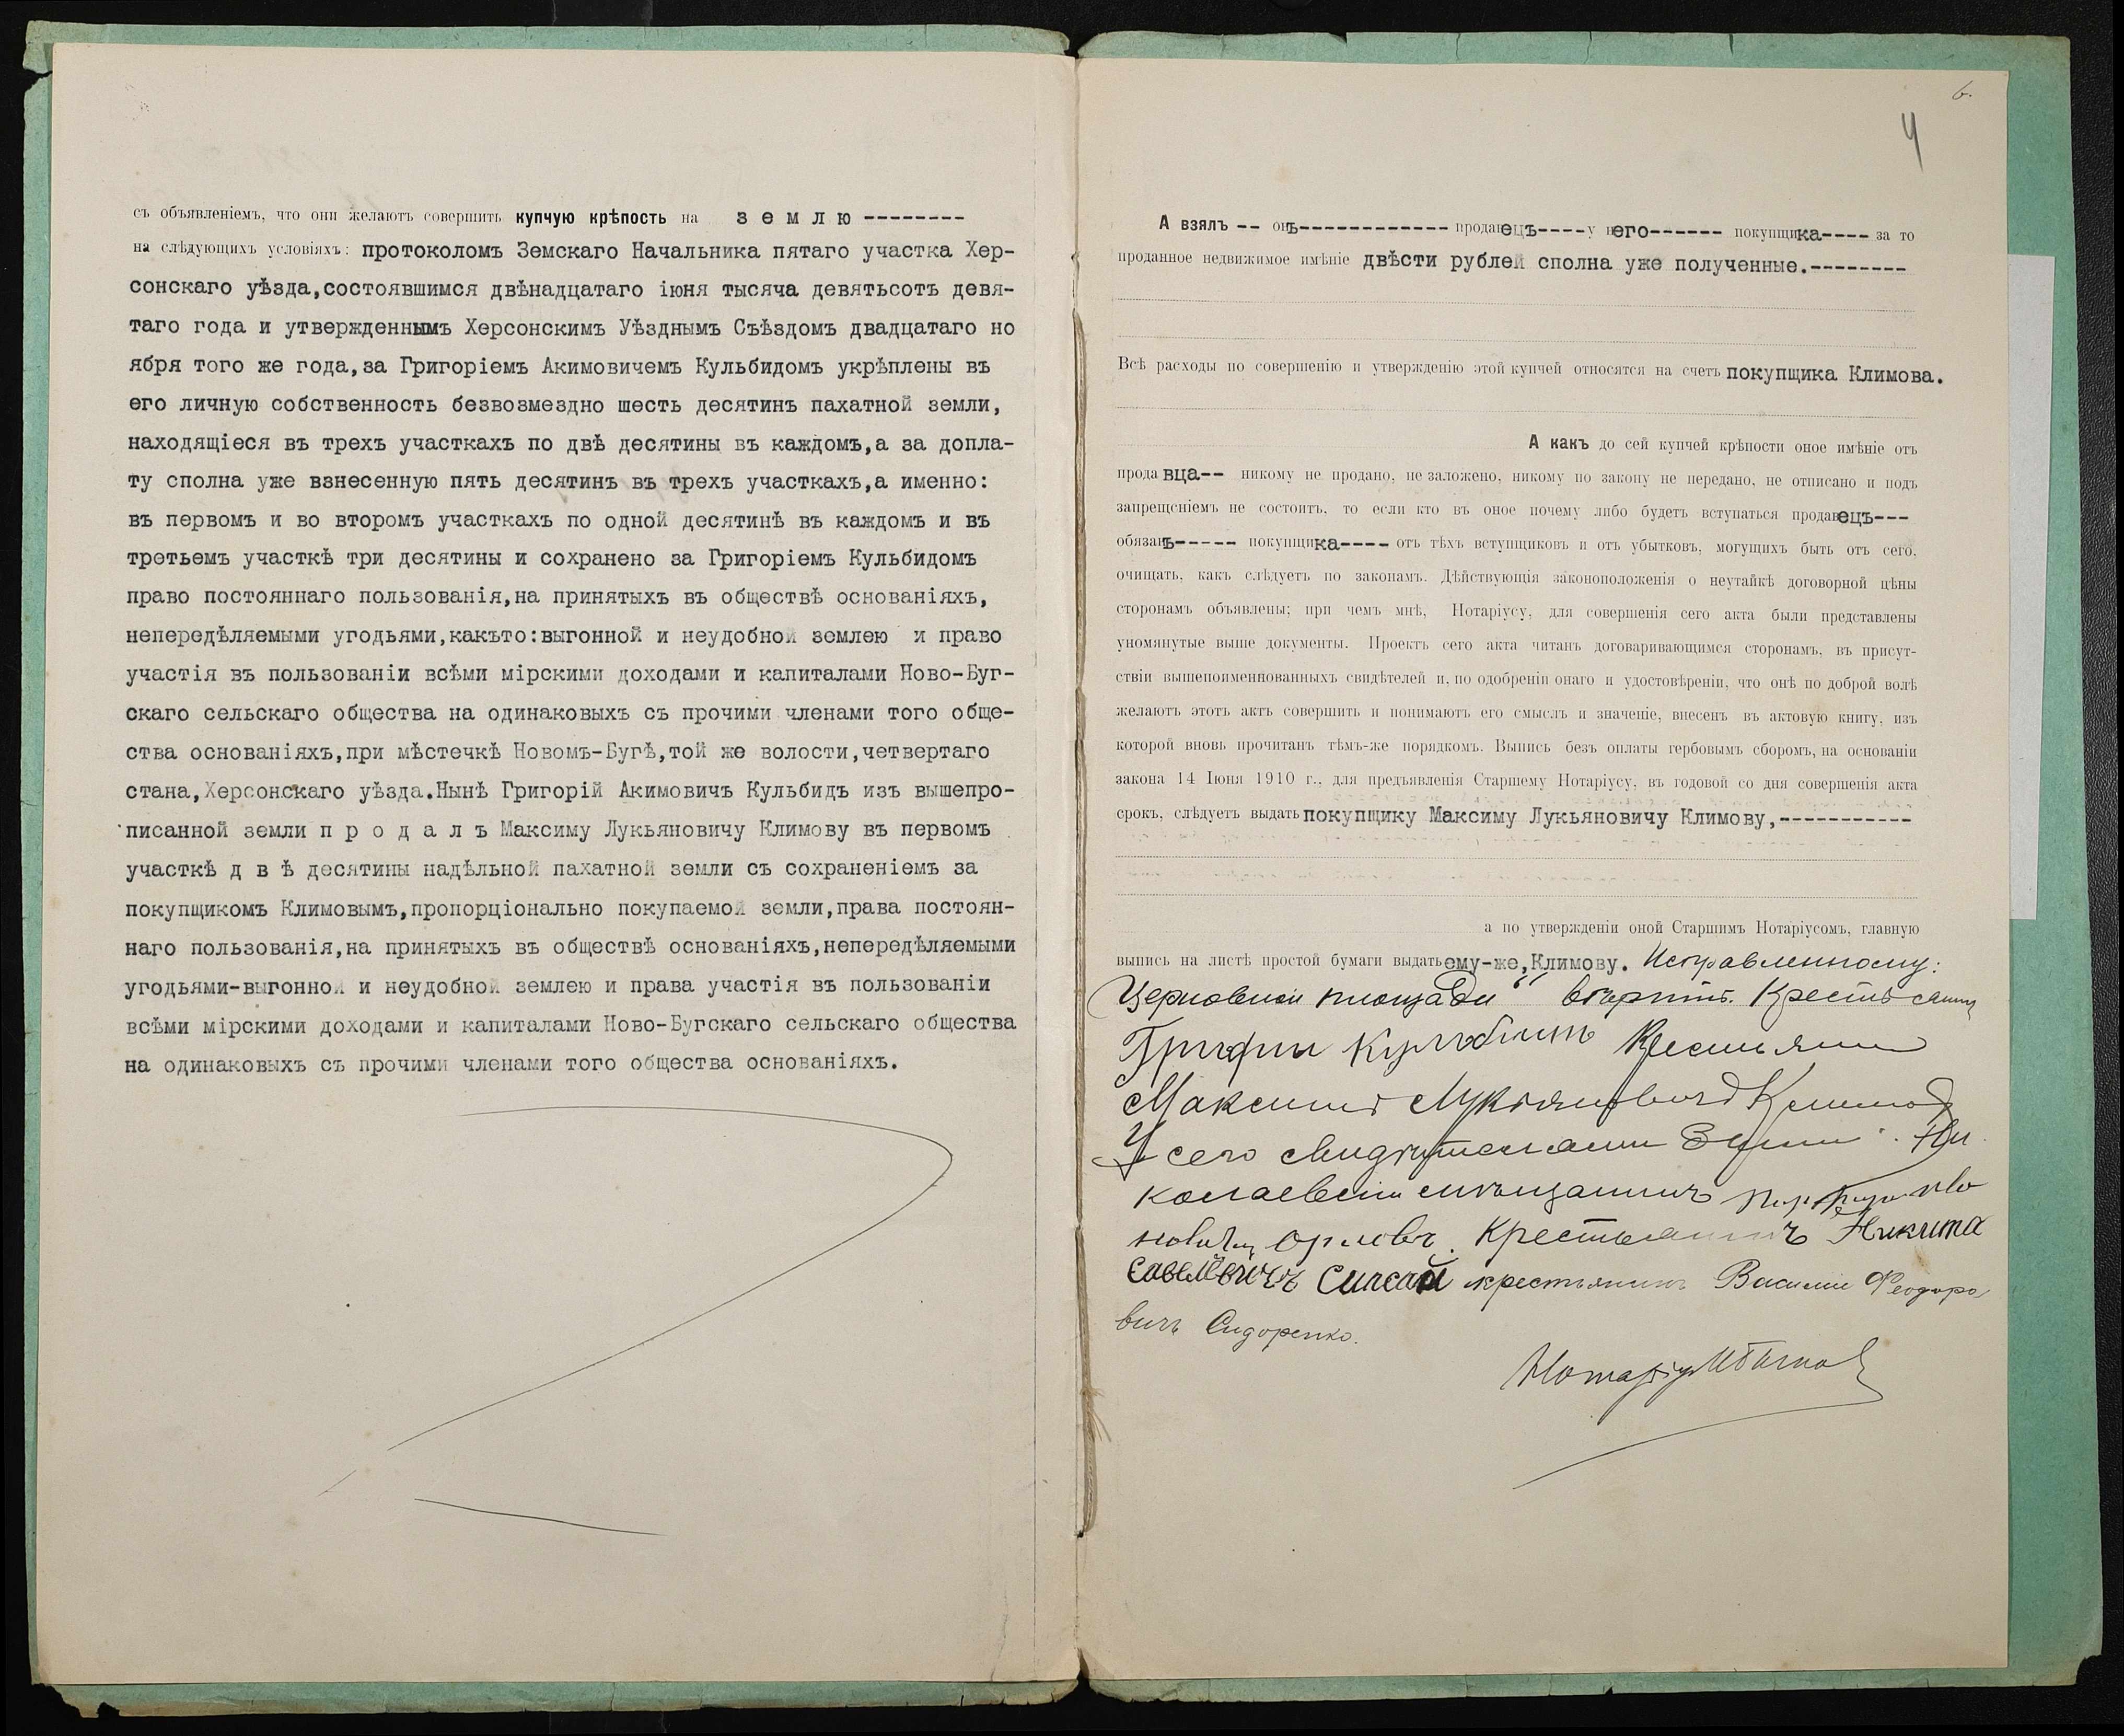 съ объявленіемъ, что они желаютъ совершить купчую крѣпость на з е м л ю --------
на слѣдующихъ условіяхъ: протоколомъ Земскаго Начальника пятаго участка Хер-
сонскаго уѣзда,состоявшимся двѣнадцатаго іюня тысяча девятьсотъ девя-
таго года и утвержденнымъ Херсонскимъ Уѣзднымъ Съѣздомъ двадцатаго но
ября того же года,за Григоріемъ Акимовичемъ Кульбидомъ укрѣплены въ
его личную собственность безвозмездно шесть десятинъ пахатной земли,
находящіеся въ трехъ участкахъ по двѣ десятины въ каждомъ,а за допла-
ту сполна уже взнесенную пять десятинъ въ трехъ участкахъ,а именно:
въ первомъ и во второмъ участкахъ по одной десятинѣ въ каждомъ и въ
третьемъ участкѣ три десятины и сохранено за Григоріемъ Кульбидомъ
право постояннаго пользованія,на принятыхъ въ обществѣ основаніяхъ,
непередѣляемыми угодьями,какъто:выгонной и неудобной землею и право
участія въ пользованіи всѣми мірскими доходами и капиталами Ново-Буг-
скаго сельскаго общества на одинаковыхъ съ прочими членами того обще-
ства основаніяхъ,при мѣстечкѣ Новомъ-Бугѣ,той же волости,четвертаго
стана,Херсонскаго уѣзда.Нынѣ Григорій Акимовичъ Кульбидъ изъ вышепро-
писанной земли п р о д а л ъ Максиму Лукьяновичу Климову въ первомъ
участкѣ д в ѣ десятины надѣльной пахатной земли съ сохраненіемъ за
покупщикомъ Климовымъ,пропорціонально покупаемой земли,права постоян-
наго пользованія,на принятыхъ въ обществѣ основаніяхъ,непередѣляемыми
угодьями-выгонной и неудобной землею и права участія въ пользованіи
всѣми мірскими доходами и капиталами Ново-Бугскаго сельскаго общества
на одинаковыхъ съ прочими членами того общества основаніяхъ.
6.
4
А взялъ -- онъ------------ продавецъ----у него------ покупщика---- за то
проданное недвижимое имѣніе двѣсти рублей сполна уже полученные.--------
Всѣ расходы по совершенію и утвержденію этой купчей относятся на счетъ покупщика Климова.
А какъ до сей купчей крѣпости оное имѣніе отъ
продавца-- никому не продано, не заложено, никому по закону не передано, не отписано и подъ
запрещеніемъ не состоитъ, то если кто въ оное почему либо будетъ вступаться продавецъ---
обязанъ----- покупщика---- отъ тѣхъ вступщиковъ и отъ убытковъ, могущихъ быть отъ сего,
очищать, какъ слѣдуетъ по законамъ. Дѣйствующія законоположенія о неутайкѣ договорной цѣны
сторонамъ объявлены; при чемъ мнѣ, Нотаріусу, для совершенія сего акта были представлены
уномянутые выше документы. Проектъ сего акта читанъ договаривающимся сторонамъ, въ присут-
ствіи вышепоименнованныхъ свидѣтелей и, по одобреніи онаго и удостовѣреніи, что онѣ по доброй волѣ
желаютъ этотъ актъ совершить и понимаютъ его смыслъ и значеніе, внесенъ въ актовую книгу, изъ
которой вновь прочитанъ тѣмъ-же порядкомъ. Выпись безъ оплаты гербовымъ сборомъ, на основаніи
закона 14 Іюня 1910 г., для предъявленія Старшему Нотаріусу, въ годовой со дня совершенія акта
срокъ, слѣдуетъ выдать покупщику Максиму Лукьяновичу Климову,-----------
а по утвержденіи оной Старшимъ Нотаріусомъ, главную
выпись на листѣ простой бумаги выдать ему-же,Климову. Исправленному:
площади" вѣрить. Крестьянинъ
Кульбитъ Крестьянин
Максимъ Лукяновичъ Климов
У сего свидѣтелями были: Ни
колаевскій мѣщанинъ Ива
новичъ Орловъ. Крестьянинъ Никита
Савельевичъ крестьянинъ Василій Феодоро
вичъ Сидоренко.
Нотаріус